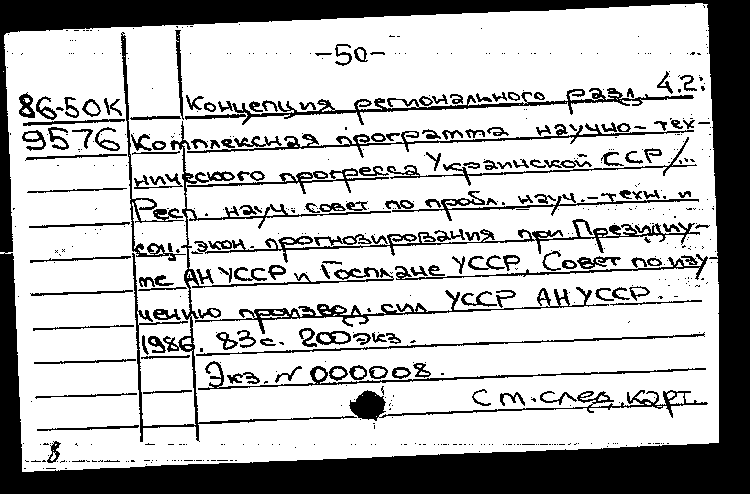 -50-
86-50К Концепция регионального разд. 4.2:
9576 Комплексная программа научно-тех-
нического прогресса Украинской ССР/...
Респ. науч. совет по пробл. науч.-техн. и
соц.-экон. прогнозирования при Президиу-
ме АН УССР и Госплане УССР, Совет по изу-
чению производ. сил УССР АН УССР.
1986. 83 с. 200 экз.
Экз. N 000008.
См. след. карт.
8